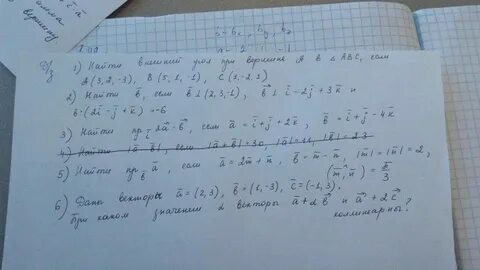 Д/з
1) Найти внешний угол при вершине A в △ABC, если
A(3,2,-3), B(5,1,-1), C(1,-2,1)
2) Найти b, если b⊥(2,3,-1), b⊥i-2j+3k и
b·(2i-j+k)=-6
3) Найти пр i 2a-b, если a=i+j+2k, b=i+j-4k
4) Найти |a-b|, если |a+b|=30, |a|=11, |b|=23
5) Найти пр b a, если a=2m+n, b=m-n, |m|=|n|=2,
(m^n)=π/3
6) Даны векторы a=(2,3), b=(1,-3), c=(-1,3).
При каком значении α векторы a+αb и a+2c
коллинеарны?